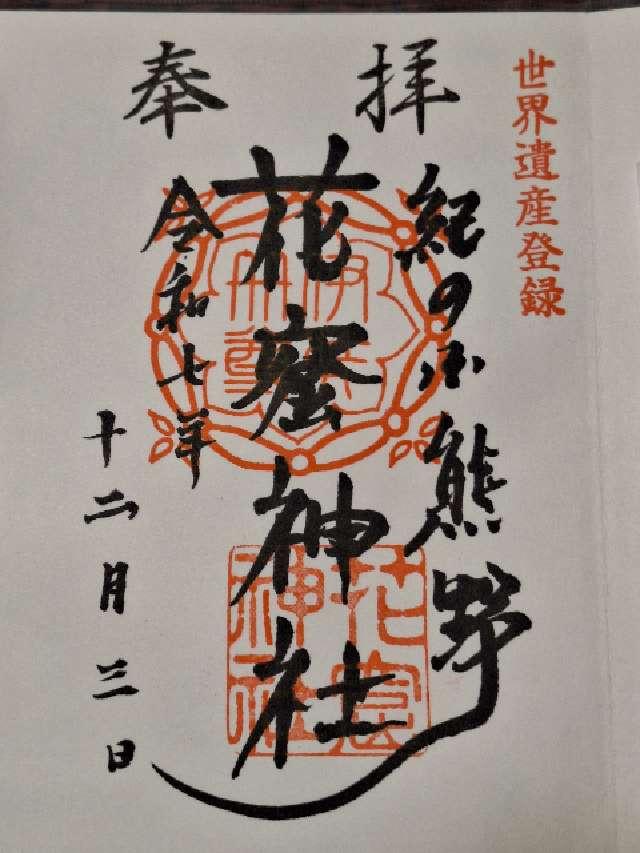 世界遺産登録
奉拝
紀の国熊野
花窟神社
令和七年
十二月三日
花窟神社